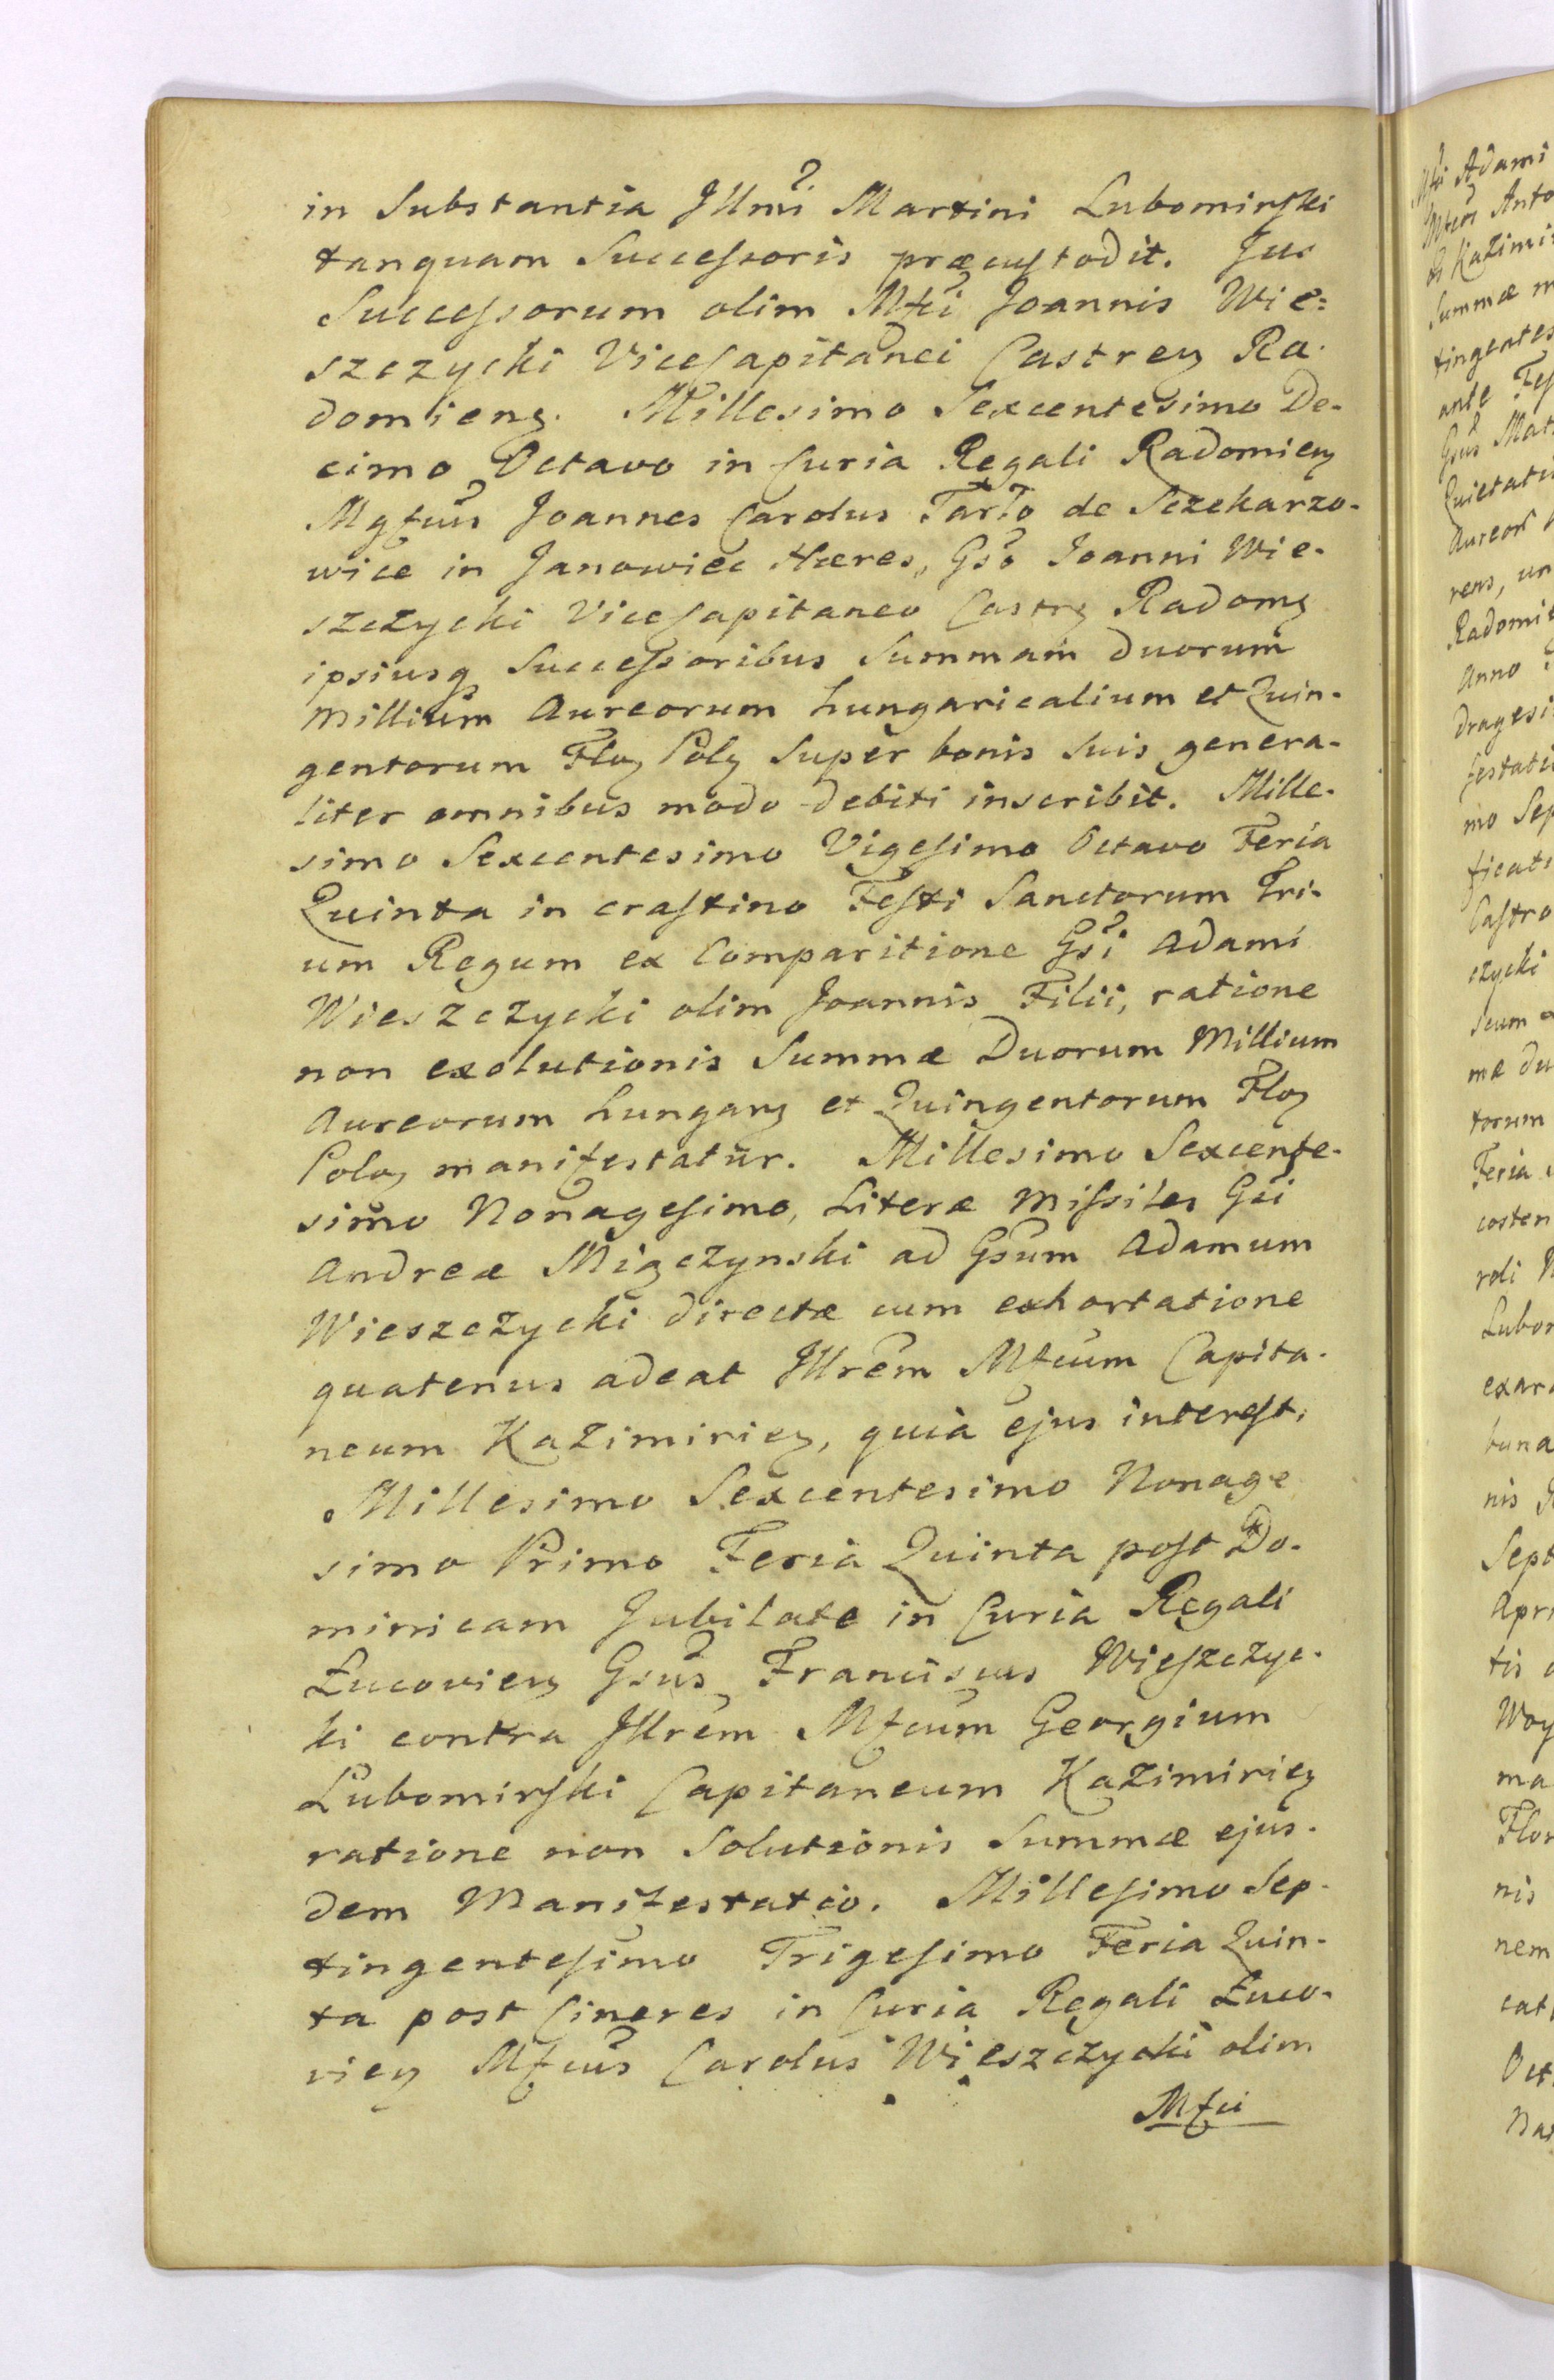 in Substantia Jllm̃i Martini Lubomirski
tanquam Successoris præcustodit. Jus
Successorum olim Mfci Joannis Wie=
szczycki ViceCapitanei Castren Ra-
domiens. Millesimo Sexcentesimo De-
cimo Octavo in Curia Regali Radomien
Mgfcus Joannes Carolus Tarło de Sczekarzo-
wice in Janowiec Hæres, Gso Joanni Wie-
szczycki ViceCapitaneo Castrs Radoms
ipsiusq Successoribus Summam Duorum
Millium Aureorum hungaricalium et Quin-
gentorum Flor Pols Super bonis suis genera-
liter omnibus modo debiti inscribit. Mille-
simo Sexcentesimo Vigesimo Octavo Feria
Quinta in crastino Festi Sanctorum Tri-
um Regum ex Comparitione Gsi Adami
Wieszczycki olim Joannis Filii, ratione
non exolutionis Summæ Duorum Millium
Aureorum hungars et Quingentorum Flor
Polon manifestatur. Millesimo Sexcente-
simo Nonagesimo, Literæ Missiles Gsi
Andreæ Miączynski ad Gsum Adamum
Wieszczycki directæ cum exhortatione
quatenus adeat Jllrem Mfcum Capita-
neum Kazimirien, quia ejus interest,
Millesimo Sexcentesimo Nonage
simo Primo Feria Quinta post Do-
minicam Jubilate in Curia Regali
Łucovien Gsus Franciscus Wieszczyc-
ki contra Jllrem Mfcum Georgium
Lubomirski Capitaneum Kazimirien
ratione non Solutionis Summæ ejus-
dem Manifestatio. Millesimo Sep-
tingentesimo Trigesimo Feria Quin-
ta post Cineres in Curia Regali Łuco-
vien Mfcus Carolus Wieszczycki olim
Mfci